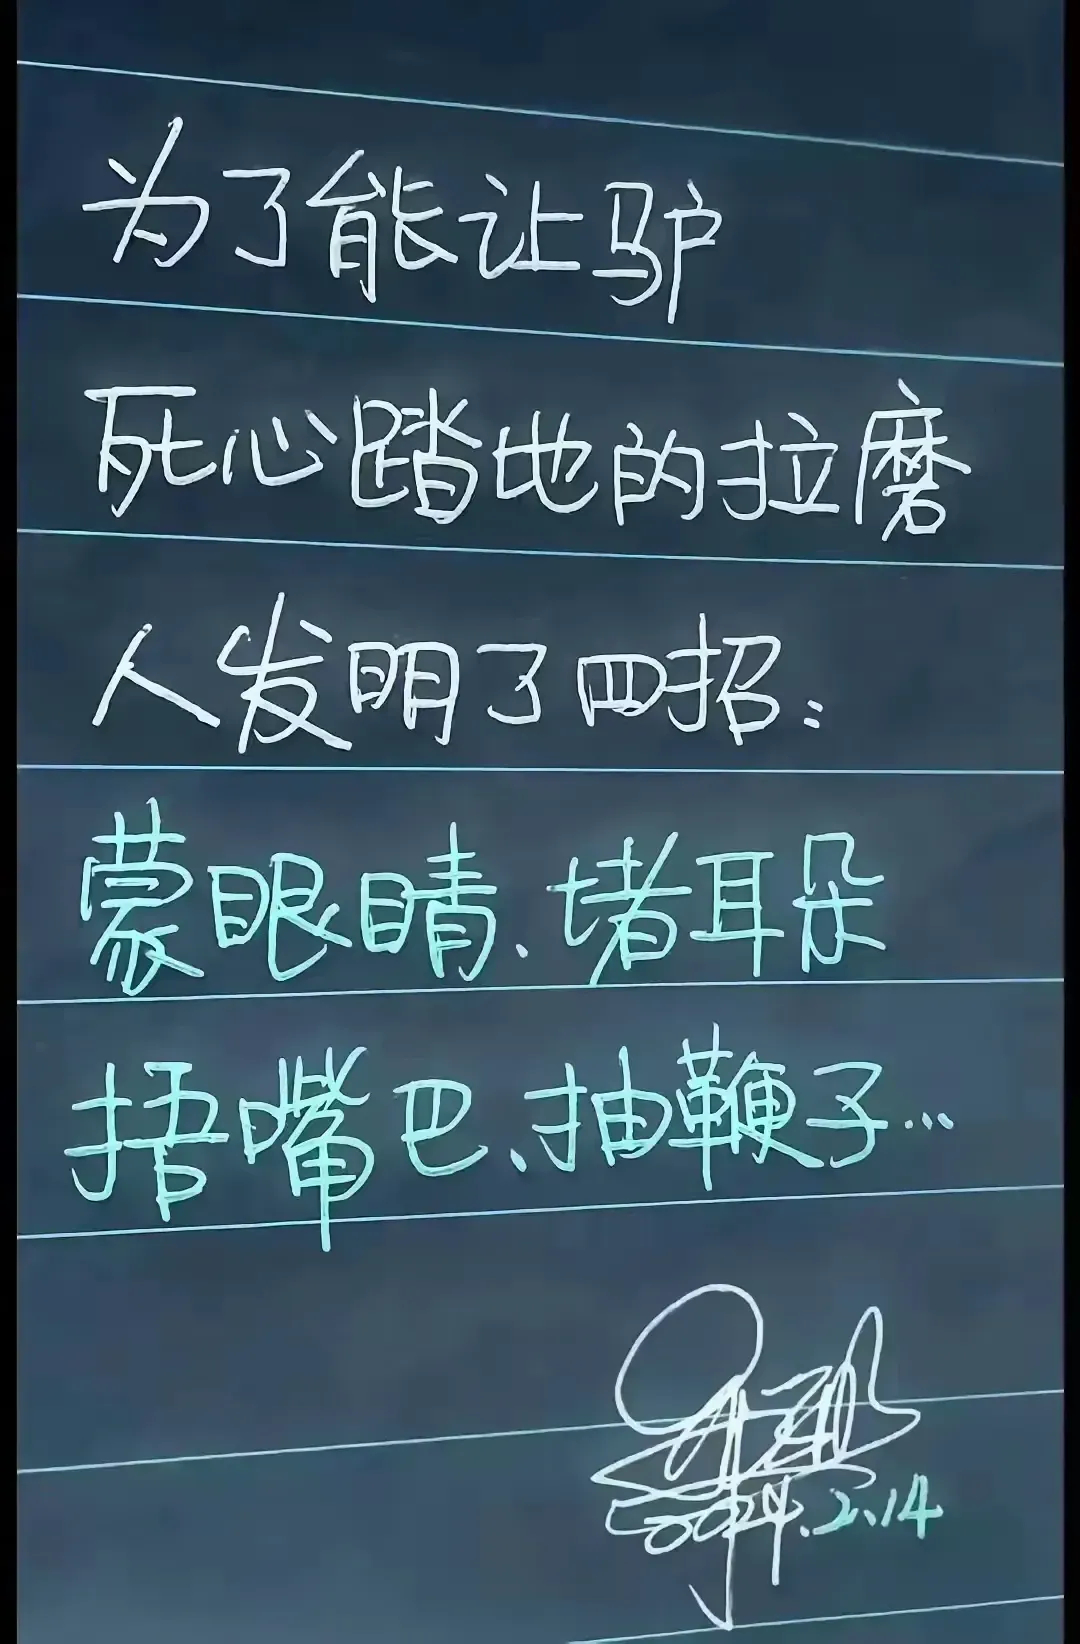 为了能让驴
死心踏地的拉磨
人发明了四招：
蒙眼睛、堵耳朵
捂嘴巴、抽鞭子…
2024.2.14